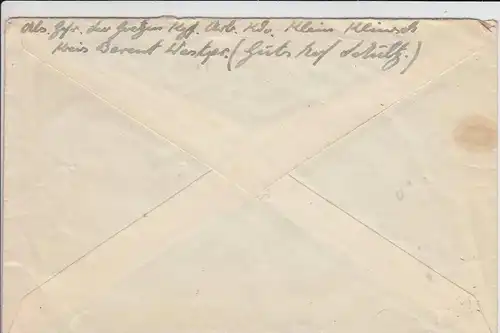 Abs. Gfr. der Kgf. Arb. Kdo. Klein Klinsch
Kreis Berent Westpr. (Gutshof Schütz.)